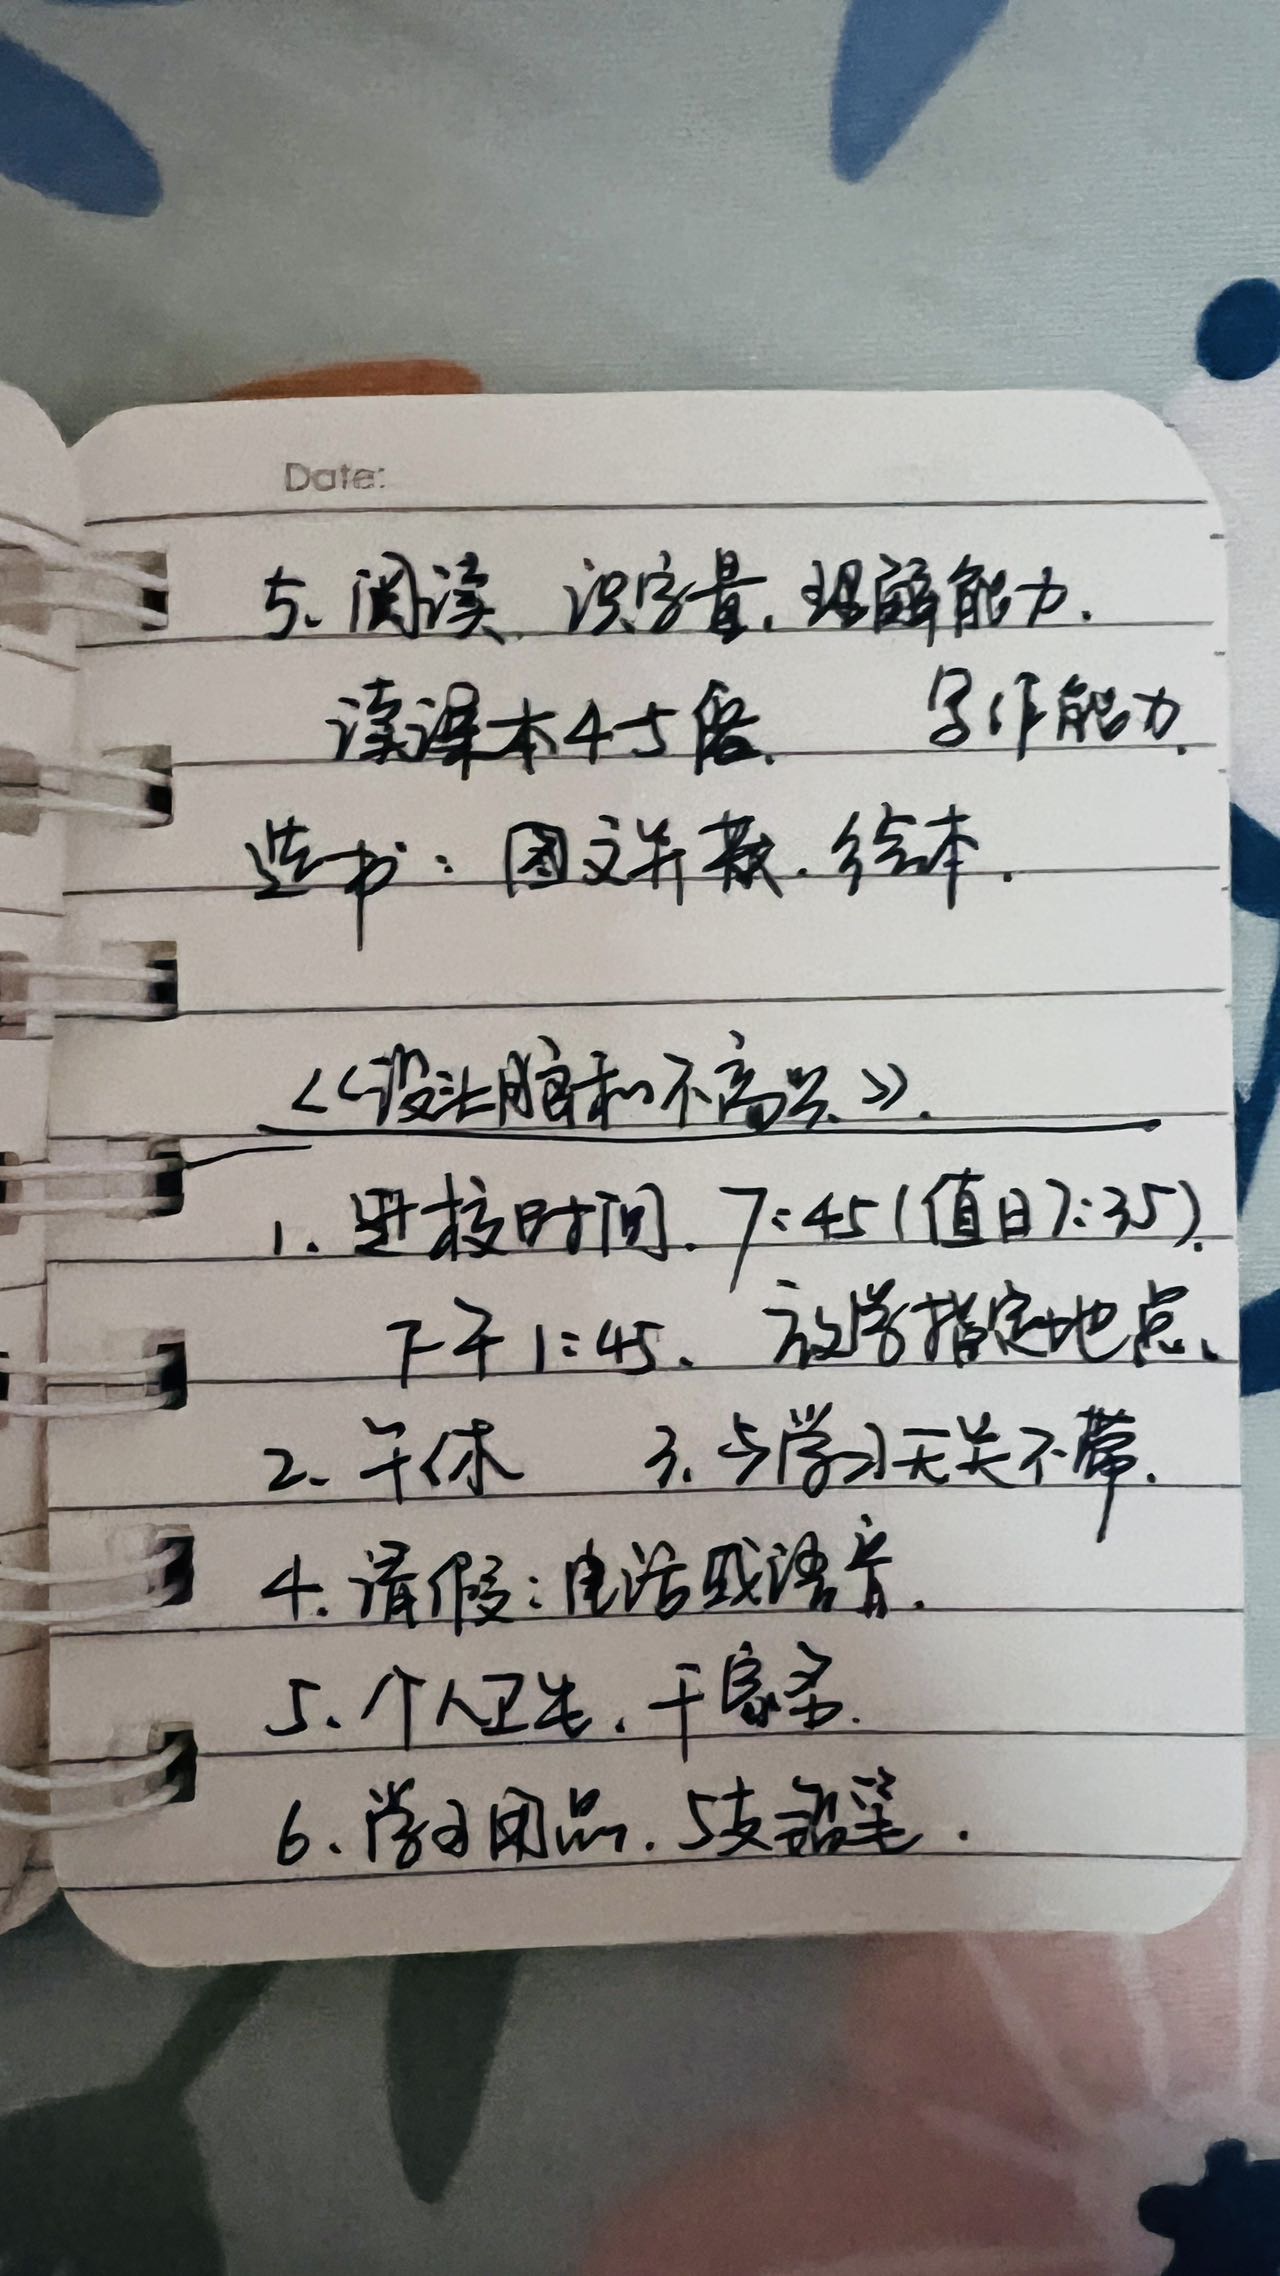 Date:
5、阅读、识字量、理解能力.
读课本4-5倍. 写作能力.
选书：图文并茂.绘本.
《没头脑和不高兴》.
1、进校时间. 7:45(值日7:35).
下午1:45、放学指定地点、
2、午休 3、与学习无关不带.
4、请假：电话或语音.
5、个人卫生.
6、学习用品. 5支铅笔.